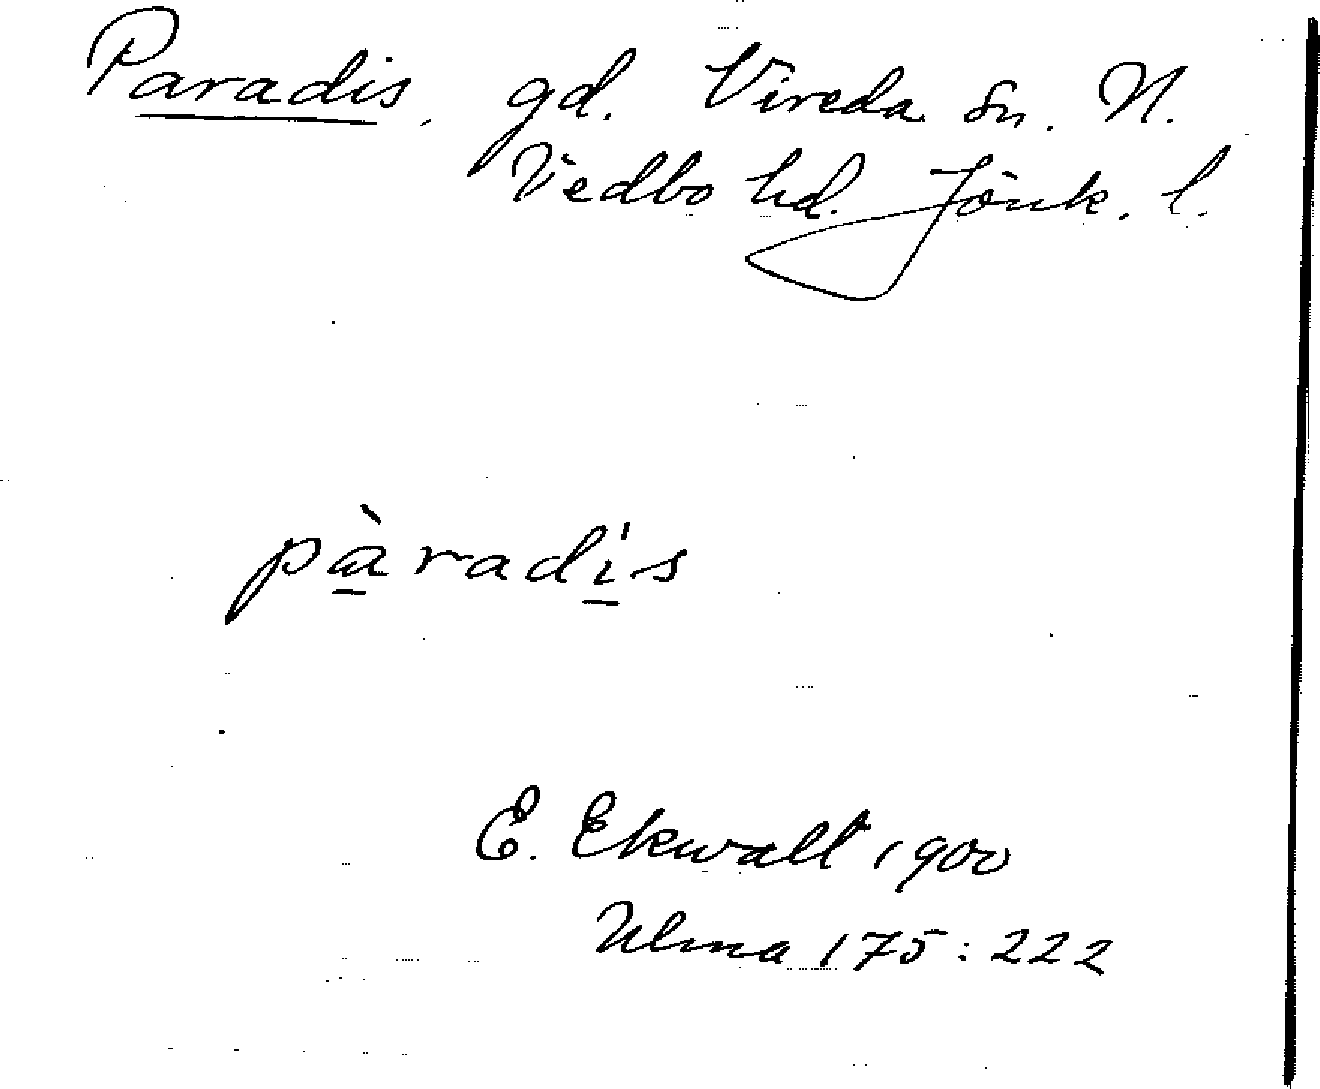 Paradis, gd. Vireda sn. N.
Vedbo hd. Jönk. l.
pàradis
E. Ekwall 1900
Ulma 175:222